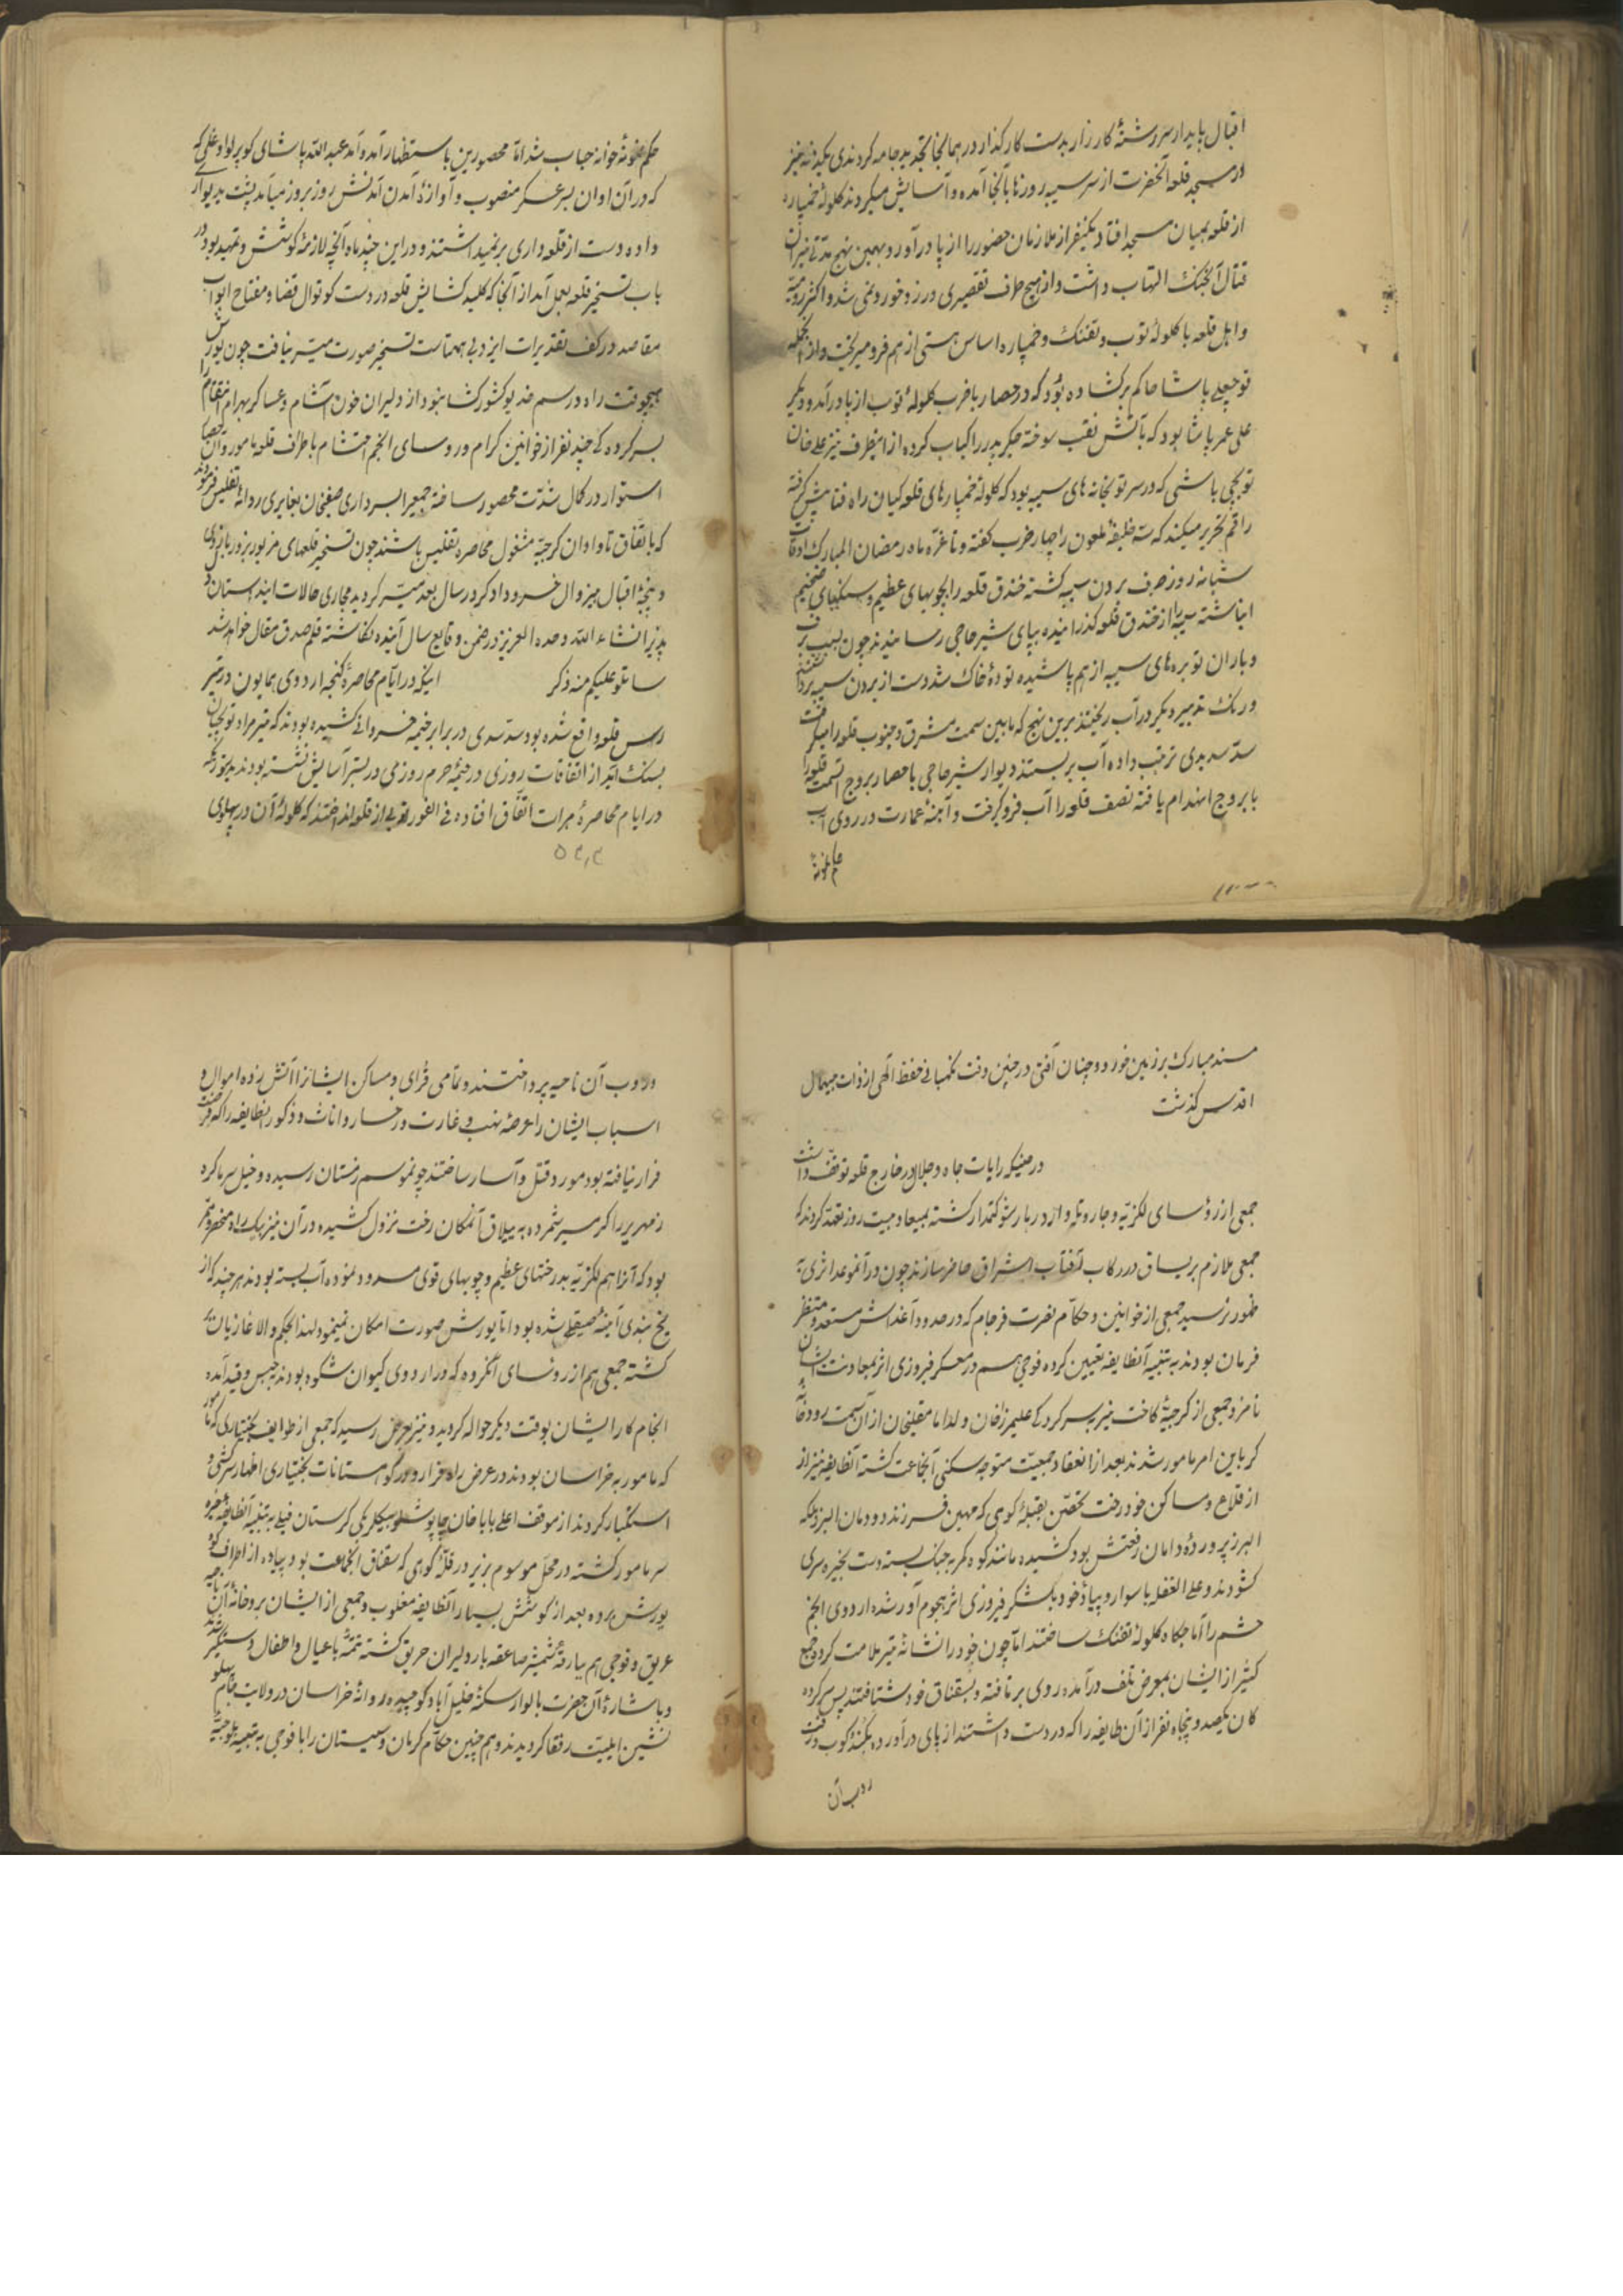 اقبال پایدار سررشتهٔ کارزار بدست کارگذار در همانجا تجدید جامه کردندی یکدفعه نیز
در مسجد قلعه آنحضرت از سر سیبه روزها بآنجا آمده و آسایش میکردند کلولهٔ خمپاره
از قلعه بمیان مسجد افتاد یکنفر از ملازمان حضور را از پا درآورد و بهمین نهج مدتی نیران
قتال آنجنک التهاب داشت و از هیچ طرف تقصیری در زد و خورد نمی شد و اکثر رومیه
و اهل قلعه با کلولهٔ توب و تفنک و خمپاره اساس هستی از هم فرو میریخت و از آنجمله
قوجه علی پاشا حاکم برکشاده بود که در حصار با ضرب کلولهٔ توب از پا درآمد و دیگر
علی عمر پاشا بود که بآتش نقب سوخته جگر پدر را کباب کرده از اینطرف نیز علی خان
توپچی باشی که در سر توپخانه های سیبه بود که کلولهٔ خمپارهای قلعه کیان راه فنا پیش گرفته
راقم تحریر میکند که سه خلیفهٔ ملعون را چهار ضرب کفته و تا غرّه ماه رمضان المبارک اوقات
شبانه روز صرف بردن سیبه کشته خندق قلعه را بچوبهای عظیم و سنگهای ضخیم
انباشته سیبه را از خندق قلعه گذرانیده بپای شیر حاجی رسانیدند چون بسبب برف
و باران توبره های سیبه از هم پاشیده تودهٔ خاک شد دست از بردن سیبه برداشتند
و رنک تدبیر دیگر در آب ریختند برین نهج که مابین سمت مشرق و جنوب قلعه را میگرفت
سدّ سدیدی ترتیب داده آب بر بستند دیوار شیر حاجی با حصار بروج آنسمت قلعه را
با بروج انهدام یافته نصف قلعه را آب فرو گرفت و آبنهٔ عمارت در روی آب
حکم نمونهٔ خوانه حباب شد امّا محصورین باستظهار آمد و آمد عبدالله پاشای کوپرلو اوغلی که
که در آن اوان بسرعسکر منصوب و آوازهٔ آمدن آمدنش روز بروز میآمد پشت بدیوار
داده دست از قلعه داری برنمیداشتند و در این چند ماه آنچه لازمهٔ کوشش و تمهید بود در
باب تسخیر قلعه بعمل آمد از آنجا که کلید کشایش قلعه در دست کوتوال قضا و مفتاح ابواب
مقاصد در کف تقدیرات ایزد بی همتاست تسخیر صورت میسّر نیافت چون یورش
هیچوقت راه و رسم خدیو کشورکشا نبود از دلیران خون آشام و عساکر بهرام انتقام را
بسرکرده کی چند نفر از خوانین کرام و روسای انجم احتشام باطراف قلعه مامور و آن حصار
استوار در کمال شدّت محصور ساخته جمعی را بسرداری صفیخان بغایری روانهٔ تفلیس فرمودند
که باتّفاق تاوادان کرجیّه مشغول محاصره تفلیس باشند چون تسخیر قلعهای مزبور بزور بازوی
و پنجهٔ اقبال بیزوال خسرو دادگر در سال بعد میسّر گردید مجاری حالات اینداستان
پذیر انشاء الله وحده العزیز در ضمن وقایع سال آینده نکاشته قلم صدق مقال خواهد شد
ساتلو علیکم منه ذکر اینکه در ایّام محاصرهٔ کنجه اردوی همایون در تیر
رس قلعه واقع شده بود سدّ سدی در برابر خیمهٔ خسروانی کشیده بودند که تیر مراد توپچیان
بسنک آید از اتفاقات روزی در خیمهٔ حرم روزی در بستر آسایش نشسته بودند بدستوری که
در ایام محاصرهٔ هرات اتّفاق افتاده فی الفور توپی از قلعه انداختند که کلولهٔ آن در پهلوی
مسند مبارک بر زمین خورد و چنان آفتی در چنین وقت بنگهبانی حفظ آلهی از ذات بیهمال
اقدس گذشت
در حینیکه رایات جاه و جلال در خارج قلعه توقف داشت
جمعی از رؤسای لکزیّه و جار و تله وارد دربار شوکتمدار کشته بمیعاد بیست روز تعهّد کردند که
جمعی ملازم بر یساق در رکاب آفتاب اشراق حاضر سازند چون در آنموعد اثری به
ظهور نرسید جمعی از خوانین و حکّام نصرت فرجام که در حدود آغداش مستعد و منتظر
فرمان بودند به تنبیه آنطایفه تعیین کرده فوجی هم در معسکر فیروزی اثر بمعاونت ایشان
نامزد و جمعی از کرجیّهٔ کاخت نیز بسرکرده کی علیمیرزاخان ولد امامقلیخان از آن سمت رودخانهٔ
کر باین امر مامور شدند بعد از انعقاد جمعیّت متوجه سکنی آنجماعت کشته آنطایفه نیز از
از قلاع و مساکن خود رخت تحصّن بقلّهٔ کوهی که مهین فرزند دودمان البرز بلکه
البرز پروردهٔ دامان رفعتش بود کشیده مانند کوه کمر به جنک بسته دست بخیره سری
کشودند و علی الغفله با سوار و پیادهٔ خود بلشکر فیروزی اثر هجوم آور شده اردوی انجم
حشم را آماجکاه کلولهٔ تفنک ساختند امّا چون خود را نشانهٔ تیر ملامت کرده جمع
کثیر از ایشان بمعرض تلف درآمده روی بر تافته و بسقناق خود شتافتند پس سرکرده
کان یکصد و پنجاه نفر از آن طایفه را که در دست داشتند از پای درآورده
روب آن
و روب آن ناحیه پرداختند و تمامی قرای و مساکن ایشانرا آتش زده اموال و
اسباب ایشان را عرضهٔ نهب و غارت و اناث و ذکور آنطایفه را که فرصت
فرار نیافته بود مورد قتل و آسار ساختند چونموسم زمستان رسیده و خیل سرما کره
زمهریر را کرمسیر شمرده به ییلاق آنمکان رخت نزول کشیده در آن نیز بیک راه منحصر
بود که آنرا هم لکزیّه بدرختهای عظیم و چوبهای قوی مسدود نموده آب بسته بودند هرچند که از
یخ بندی آینهٔ صیقلی شده بود امّا یورش صورت امکان نمینمود لهذا بحکم والا غازیان
کشته جمعی هم از روسای آنکروه که در اردوی کیوان شکوه بودند بحبس و قید آمده
انجام کار ایشان بوقت دیگر حواله گردید و نیز بعرض رسید که جمعی از طوایف بختیاری که ما
که مامور به خراسان بودند در عرض راه فرار و در کوهستانات بختیاری اظهار سرکشی و
استکبار کردند از موقف اعلی باباخان چاپوشلو بیکلربکی لرستان فیلی به تنبیه آنطایفه
سر مامور کشته در محل موسوم بزیر در قلّهٔ کوهی که سقناق آنجماعت بود پیاده از اطراف کوه
یورش برده بعد از کوشش بسیار آنطایفه مغلوب و جمعی از ایشان برودخانهٔ آن ناحیه
غریق و فوجی هم ببارقهٔ شمشیر صاعقه بار دلیران حریق کشته تتمّه با عیال و اطفال دستگیر شدند
و باشارهٔ آن حضرت با لوار سکنهٔ خلیل آباد کوچیده روانهٔ خراسان در ولایت جام
نشین ایلیّت رفقا گردیدند و هم چنین حکّام کرمان و سیستان را با فوجی به تنبیه بلوچیّه